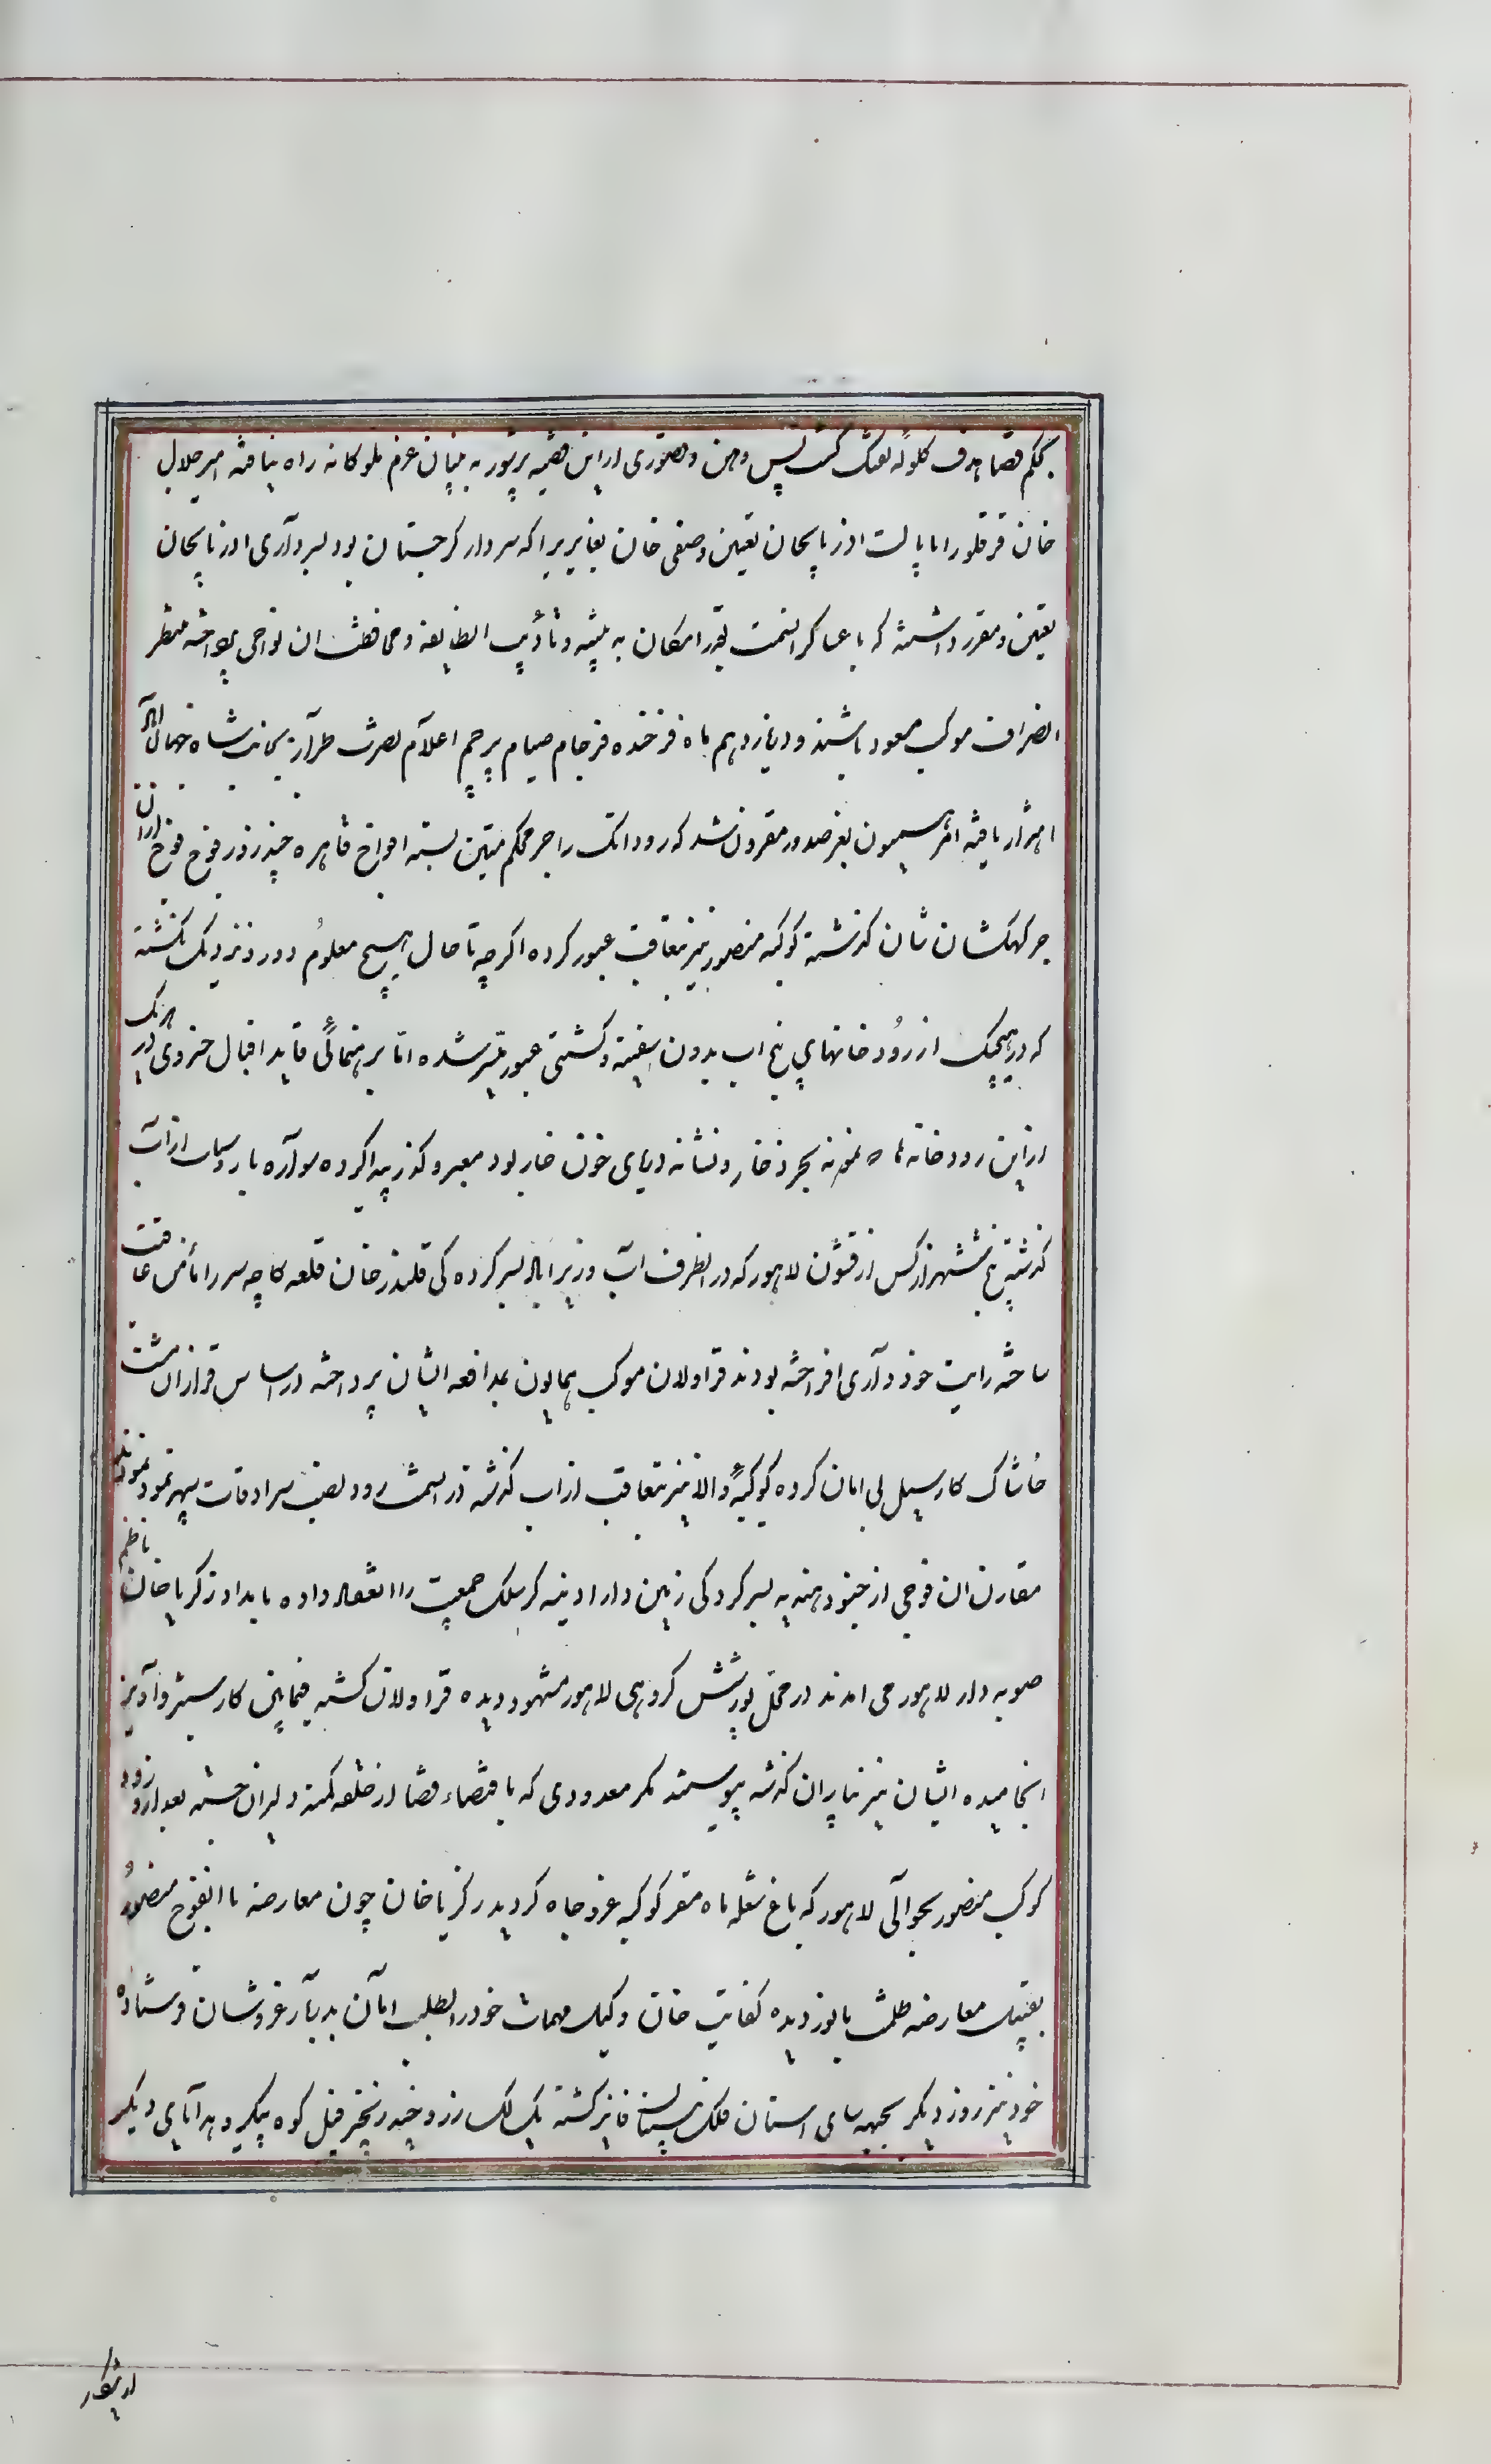 بحکم قضا هدف کلوله تفنک کشت پس وهن و قصوری از این قضیه پرشور به بنیان عزم ملوکانه راه نیافته امیر جلال
خان قرقلو را بایالت اذربایجان تعیین و صفی خان بغایری را که سردار کرجستان بود بسرداری اذربایجان
تعیین و مقرر داشتند که با عساکر انسمت بقدر امکان به تنبیه و تادیب انطایفه و محافظت ان نواحی پرداخته منتظر
انصراف موکب مسعود باشند و در پانزدهم ماه فرخنده فرجام صیام پرچم اعلام نصرت طراز بجانب شاه جهان اباد
اهتزاز یافته امر همیون بعز صدور مقرون شد که رود اتک را جسر محکم متین بسته افواج قاهره چند روز فوج فوج ازان
جسر کهکشان شان کذشته کوکبه منصور نیز بتعاقب عبور کرده اکرچه تا حال هیچ معلوم دور و نزدیک نکشته
که در هیچیک از رودخانهای پنج اب بدون سفینه و کشتی عبور میسر شده اما برهنمائی قاید اقبال خسروی در هریک
ازاین رودخانه ها که نمونه بحر ذخار و نشانه دریای خون خار بود معبر و کذر پیدا کرده سواره با روسیان از اب
کذشته پنج ششهزار کس از قشون لاهور که در انطرف اب وزیر اباد بسرکرده کی قلندر خان قلعه کاچه سر را مامن عافیت
ساخته رایت خودداری افراخته بودند قراولان موکب همایون بمدافعه ایشان پرداخته در اساس قرار ان مشت
خاشاک کار سیل بی امان کرده کوکبه والا نیز بتعاقب از اب کذشته در انسمت رود نصب سرادقات سپهر نمود نمودند
مقارن ان فوجی از جنود هندیه بسرکردکی زمین دار ادینه کر سلک جمعیت را انعقاد داده بامداد زکریا خان ناظم
صوبه دار لاهور می امدند در محل پورشش کروهی لاهور مشهود دیده قراولان کشته فیمابین کار بستیز و اویز
انجامیده ایشان نیز بیاران کذشته پیوستند مکر معدودی که باقتضاء قضا از حلقه کمند دلیران جسته بعد از ورود
کوکب منصور بحوالی لاهور که باغ شعله ماه مقر کوکبه عز و جاه کردید زکریا خان چون معارضه با انفوج منصور
بعینه معارضه ظلمت با نور دیده کفایت خان وکیل مهمات خود را بطلب امان بدربار عز و شان فرستاده
خود نیز روز دیکر بجبهه سای استان فلک بستان فایز کشته یک لک زر و چند زنجیر فیل کوه پیکر و هدایای دیکر